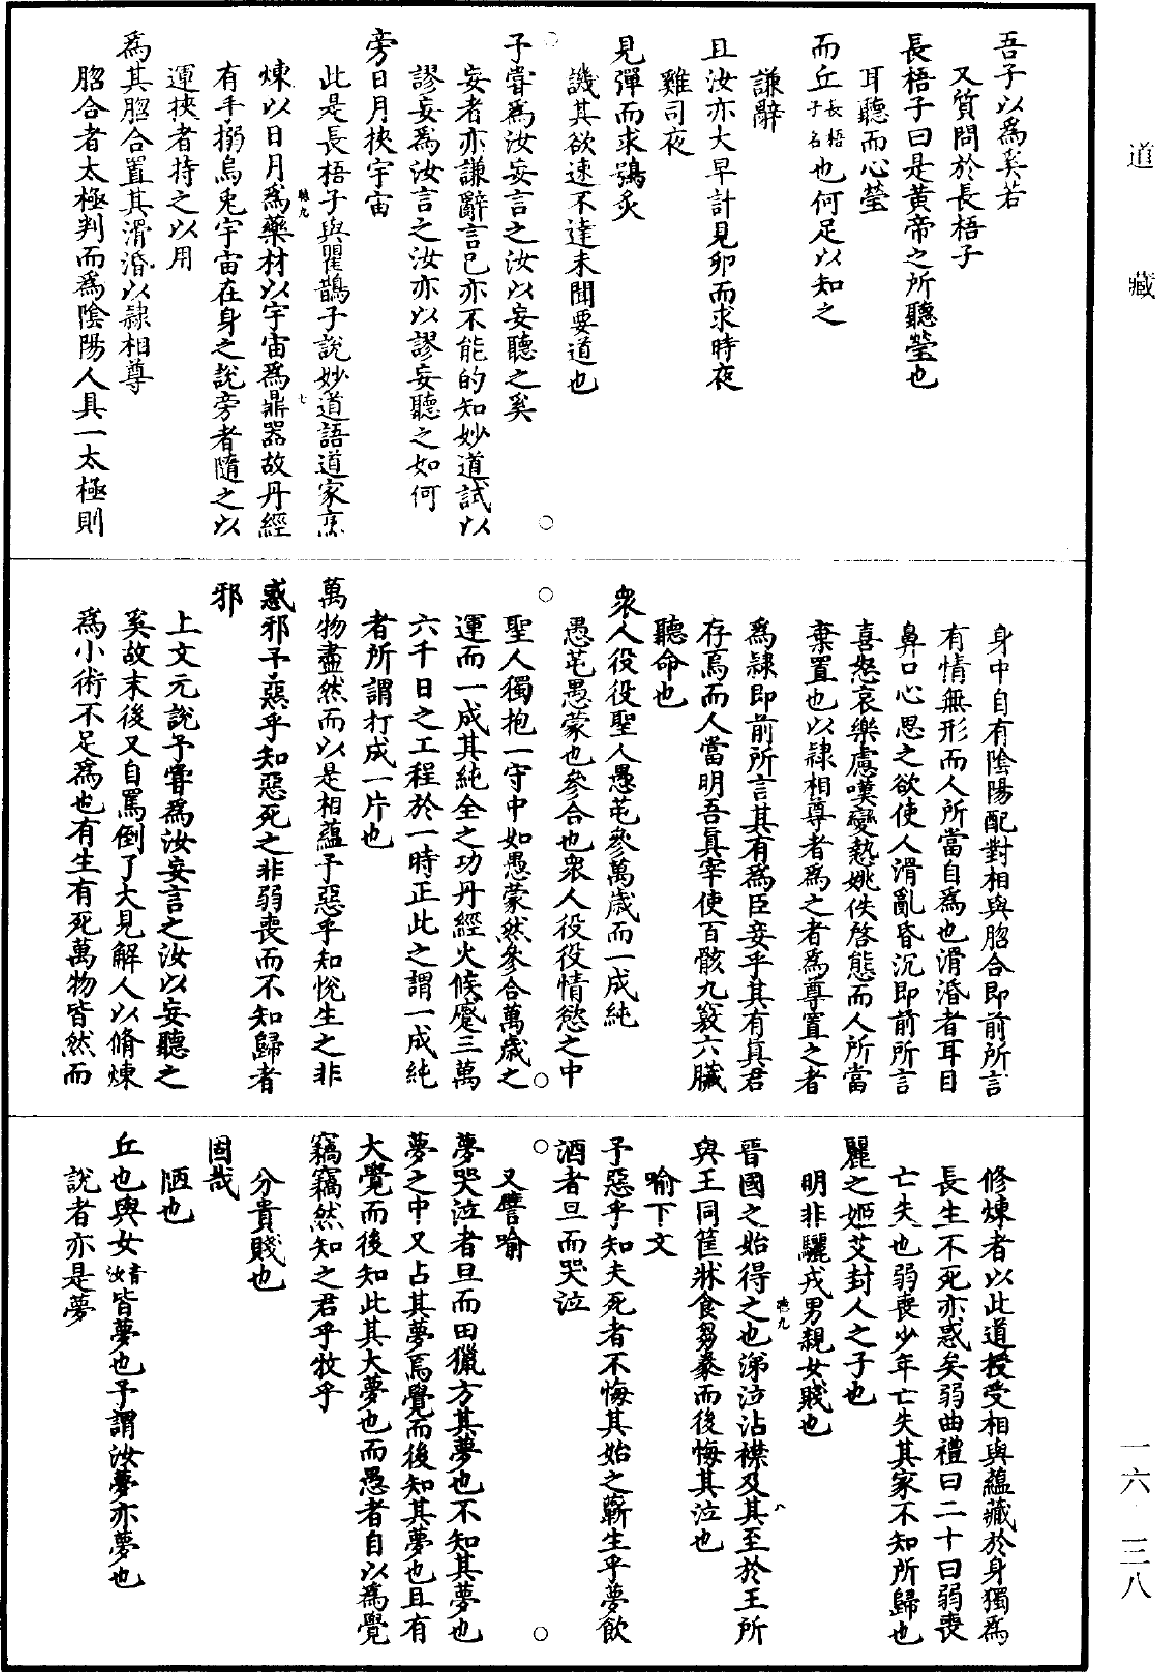 吾子以爲奚若
又質問於長梧子
長梧子曰是黄帝之所聽瑩也
耳聽而心瑩
而丘長梧子名也何足以知之
謙辭
且汝亦大早計見卵而求時夜
雞司夜
見彈而求鴞炙
譏其欲速不達未聞要道也
子嘗爲汝妄言之汝以妄聽之奚
妄者亦謙辭言己亦不能的知妙道試以
謬妄爲汝言之汝亦以謬妄聽之如何
旁日月挾宇宙
此是長梧子與瞿鵲子說妙道語道家烹
煉以日月爲藥材以宇宙爲鼎器故丹經
有手搦烏兎宇宙在身之說旁者隨之以
運挾者持之以用
爲其脗合置其滑涽以隷相尊
脗合者太極判而爲陰陽人具一太極則
身中自有陰陽配對相與脗合即前所言
有情無形而人所當自爲也滑涽者耳目
鼻口心思之欲使人滑亂昏沉即前所言
喜怒哀樂慮嘆變慹姚佚啓態而人所當
棄置也以隷相尊者爲之者爲尊置之者
爲隷即前所言其有爲臣妾乎其有眞君
存焉而人當明吾眞宰使百骸九竅六臟
聽命也
衆人役役聖人愚芚參萬歲而一成純
愚芚愚蒙也參合也衆人役役情慾之中
聖人獨抱一守中如愚蒙然參合萬歲之
運而一成其純全之功丹經火候蹙三萬
六千日之工程於一時正此之謂一成純
者所謂打成一片也
萬物盡然而以是相藴予惡乎知悅生之非
惑邪予惡乎知惡死之非弱喪而不知歸者
邪
上文元說予嘗爲汝妄言之汝以妄聽之
奚故末後又自罵倒了大見解人以脩煉
爲小術不足爲也有生有死萬物皆然而
修煉者以此道授受相與藴藏於身獨爲
長生不死亦惑矣弱曲禮曰二十曰弱喪
亡失也弱喪少年亡失其家不知所歸也
麗之姬艾封人之子也
明非驪戎男親女賤也
晉國之始得之也涕泣沾襟及其至於王所
與王同筐牀食芻豢而後悔其泣也
喻下文
予惡乎知夫死者不悔其始之蘄生乎夢飲
酒者旦而哭泣
又譬喻
夢哭泣者旦而田獵方其夢也不知其夢也
夢之中又占其夢焉覺而後知其夢也且有
大覺而後知此其大夢也而愚者自以爲覺
竊竊然知之君乎牧乎
分貴賤也
固哉
陋也
丘也與女音汝皆夢也予謂汝夢亦夢也
說者亦是夢
道藏
一六 三八